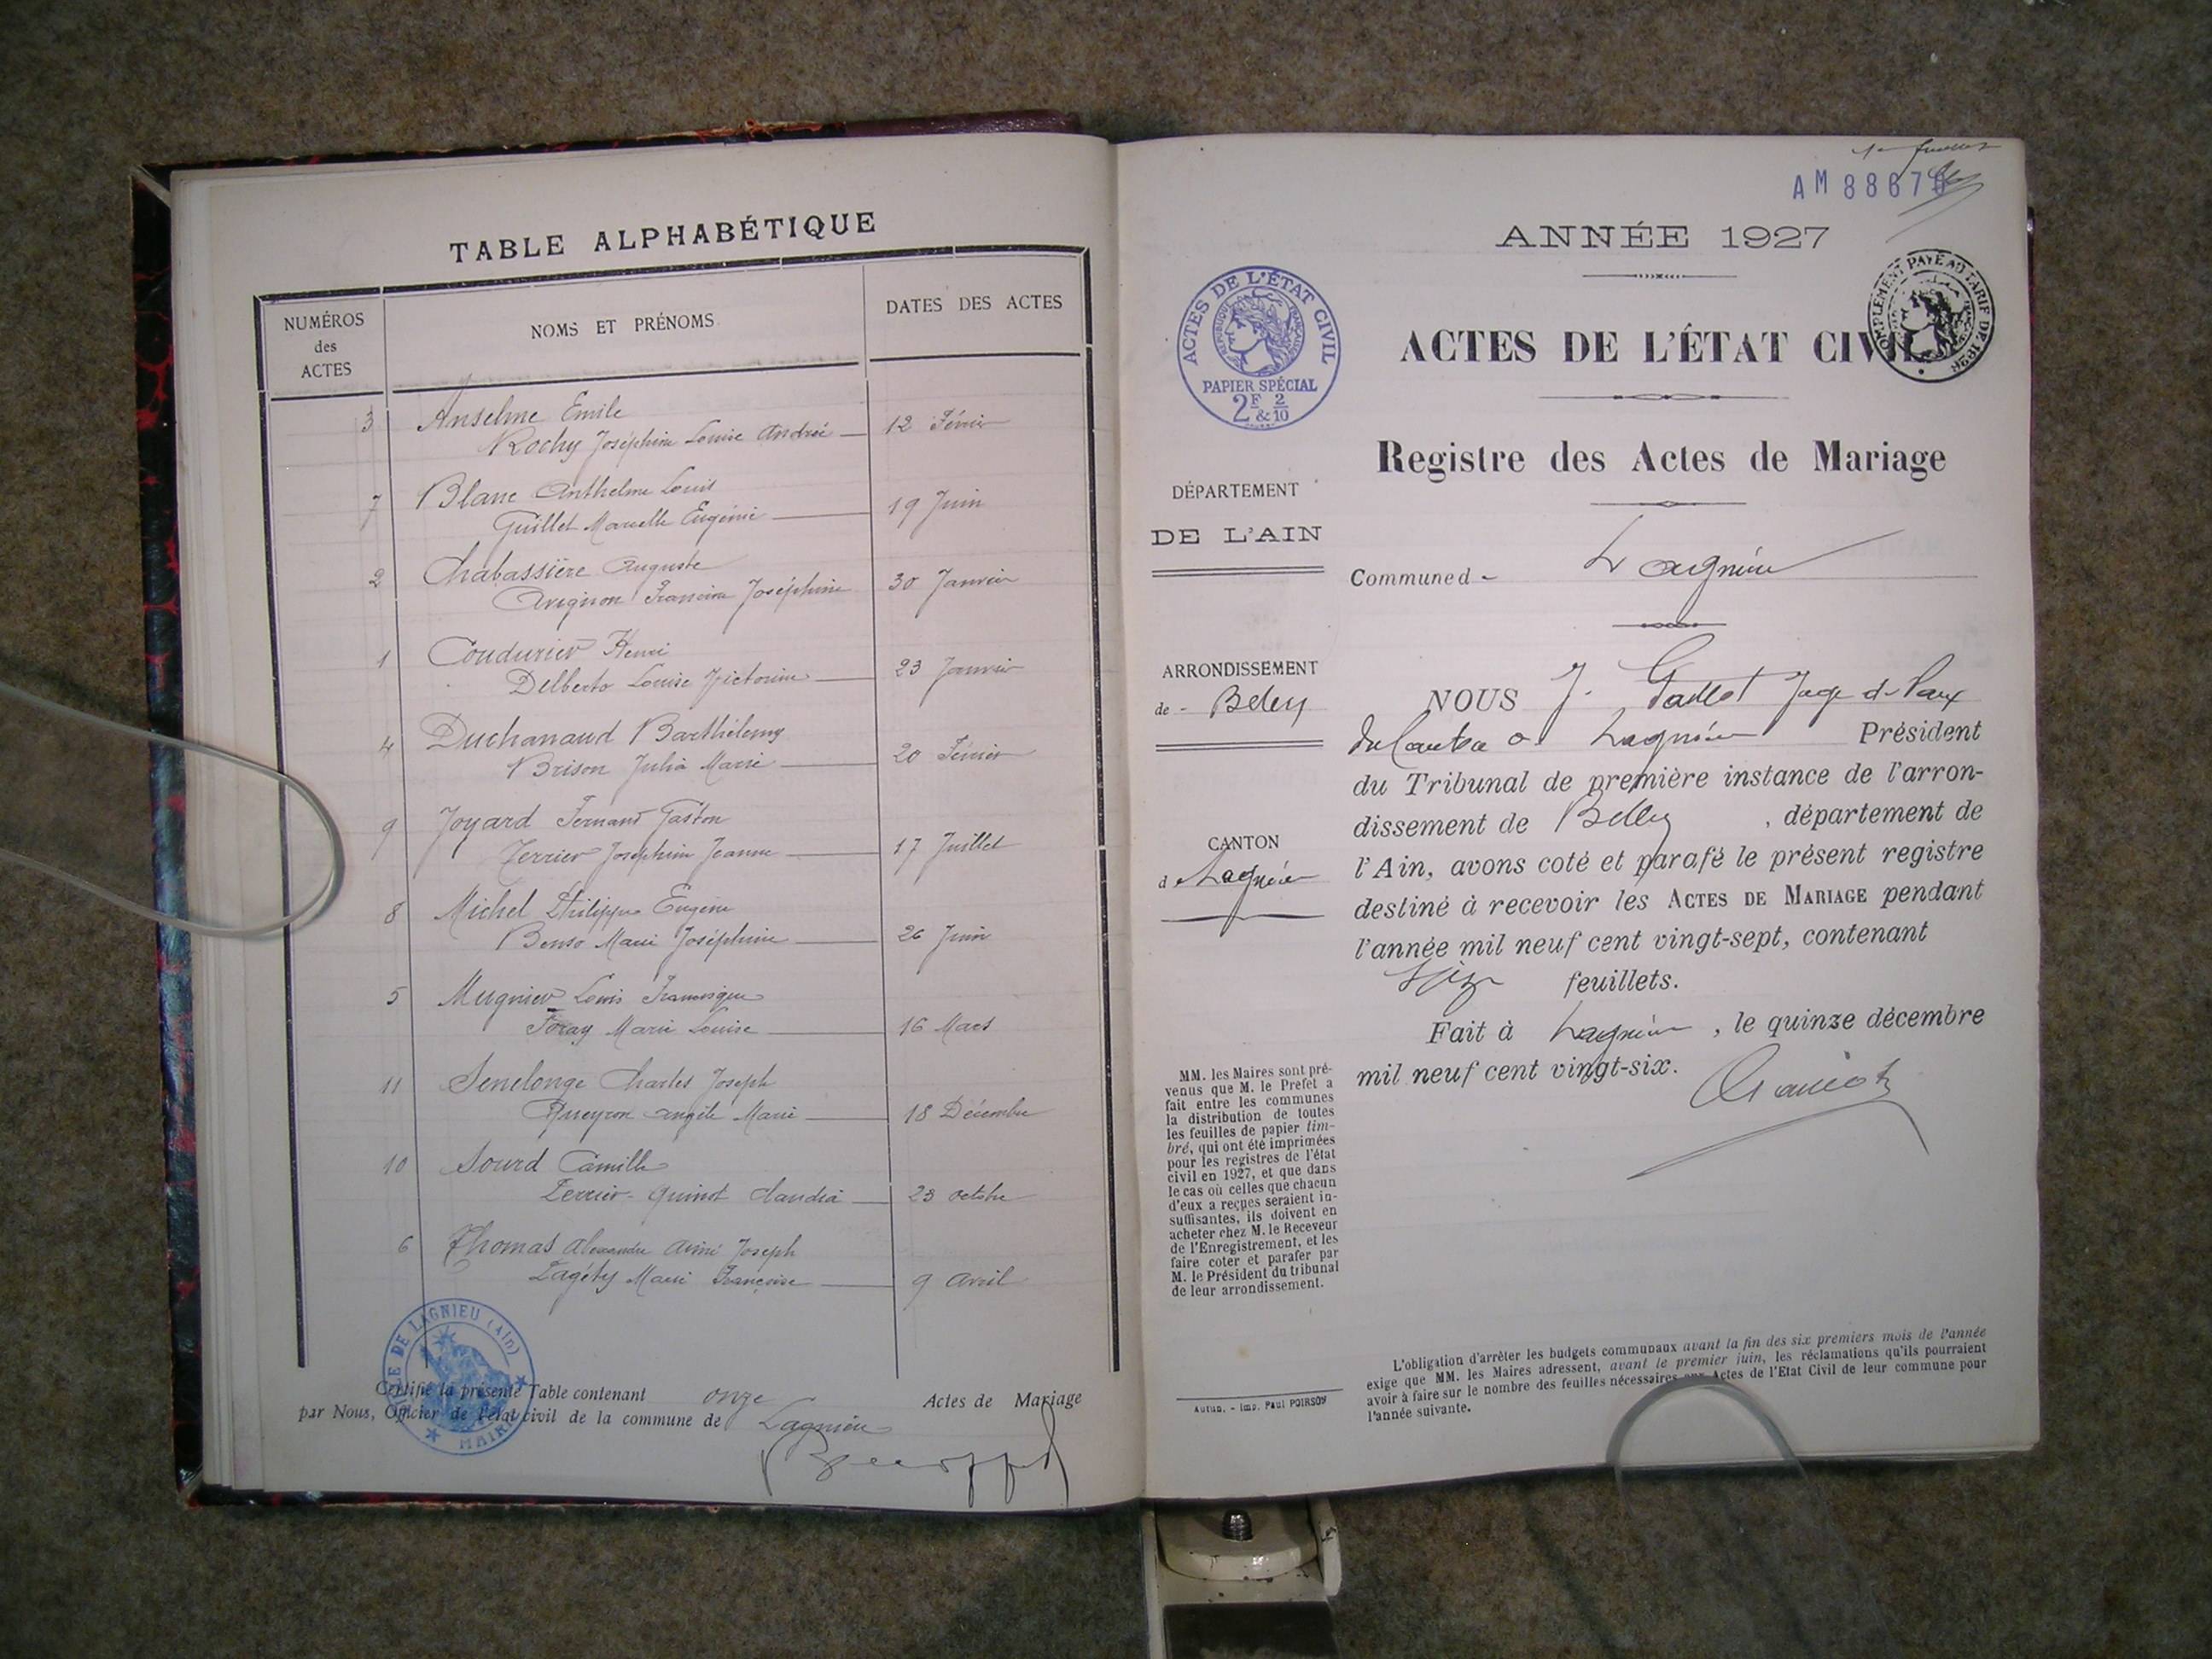 TABLE ALPHABÉTIQUE
NUMÉROS
des
ACTES
NOMS ET PRÉNOMS
DATES DES ACTES
3 Anselme Emile
Rochy Joséphine Louise Andrée 12 Février
7 Blanc Anthelme Louis
Guillet Marcelle Eugénie 19 Juin
2 Chabassière Auguste
Avignon Francine Joséphine 30 Janvier
1 Coudurier Henri
Delberto Louise Victorine 23 Janvier
4 Duchanaud Barthélemy
Brison Julia Marie 20 Février
9 Joyard Fernand Gaston
Terrier Joséphine Jeanne 17 Juillet
8 Michel Philippe Eugène
Benso Marie Joséphine 26 Juin
5 Mugnier Louis Francisque
Foray Marie Louise 16 Mars
11 Senelonge Charles Joseph
Queyron Angèle Marie 18 Décembre
10 Sourd Camille
Perrier-Guinot Claudia 23 octobre
6 Thomas Alexandre Aimé Joseph
Lagéty Marie Françoise 9 Avril
VILLE DE LAGNIEU (AIN)
MAIRIE
Certifié la présente Table contenant onze Actes de Mariage
par Nous, Officier de l'état civil de la commune de Lagnieu
1er feuillet
AM 88670
ANNÉE 1927
ACTES DE L'ÉTAT CIVIL
COMPLEMENT PAYÉ AU TARIF DE
ACTES DE L'ÉTAT CIVIL
RÉPUBLIQUE FRANÇAISE
PAPIER SPÉCIAL
2F & 2/10
Registre des Actes de Mariage
DÉPARTEMENT
DE L'AIN
Commune d- Lagnieu
ARRONDISSEMENT
de - Belley
CANTON
d Lagnieu
NOUS J. Juge de Paix
du Canton de Lagnieu Président
du Tribunal de première instance de l'arron-
dissement de Belley , département de
l'Ain, avons coté et parafé le présent registre
destiné à recevoir les ACTES DE MARIAGE pendant
l'année mil neuf cent vingt-sept, contenant
seize feuillets.
Fait à Lagnieu , le quinze décembre
mil neuf cent vingt-six.
MM. les Maires sont pré-
venus que M. le Prefet a
fait entre les communes
la distribution de toutes
les feuilles de papier tim-
bré, qui ont été imprimées
pour les registres de l'état
civil en 1927, et que dans
le cas où celles que chacun
d'eux a reçues seraient in-
suffisantes, ils doivent en
acheter chez M. le Receveur
de l'Enregistrement, et les
faire coter et parafer par
M. le Président du tribunal
de leur arrondissement.
Autun. - Imp. Paul POIRSON
L'obligation d'arrêter les budgets communaux avant la fin des six premiers mois de l'année
exige que MM. les Maires adressent, avant le premier juin, les réclamations qu'ils pourraient
avoir à faire sur le nombre des feuilles nécessaires aux Actes de l'Etat Civil de leur commune pour
l'année suivante.